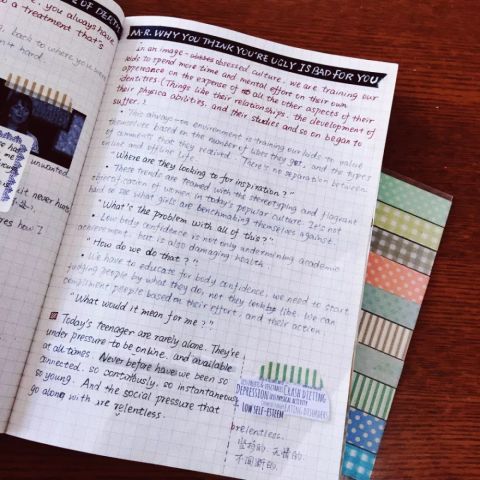 E OF DEATH
, you always have
o a treatment that's
, back to where you been
n't hard.
unwanted.
it never hur
res how I
M-R. WHY YOU THINK YOU'RE UGLY IS BAD FOR YOU
in an image - obsessed culture, we are training our
kids to spend more time and mental effort on their own
appearance on the expense of all the other aspects of their
identities. (Things like their relationships, the development of
their physical abilities, and their studies and so on began to
suffer.)
• This always-on environment is training our kids to value
themselvie based on the number of likes they get, and the types
of comments that they received. There's no separation between
online and offline life.
"Where are they looking to for inspiration?"
• These trends are teamed with the stereotyping and flagrant
objectification of women in today's popular culture. It's not
hard to see what girls are benchmarking themselves against.
"What's the problem with all of this?"
• Low body confidence is not only undermining academic
achievement, but is also damaging health.
"How do we do that?"
• We have to educate for body confidence, we need to start
judging people by what they do, not they look like. We can
compliment people based on their effort, and their action
"What would it mean for me?"
Today's teenager are rarely alone. They're
under pressure to be online, and available
at all times. Never before have we been so
connected, so continously, so instantaneous,
so young. And the social pressure that
go along with are relentless.
CRASH DIETING
DEPRESSION
PHYSICAL ACTIVITY
LOW SELF-ESTEEM
EATING DISORDERS
relentless.
坚持的. 无情的.
不间断的.